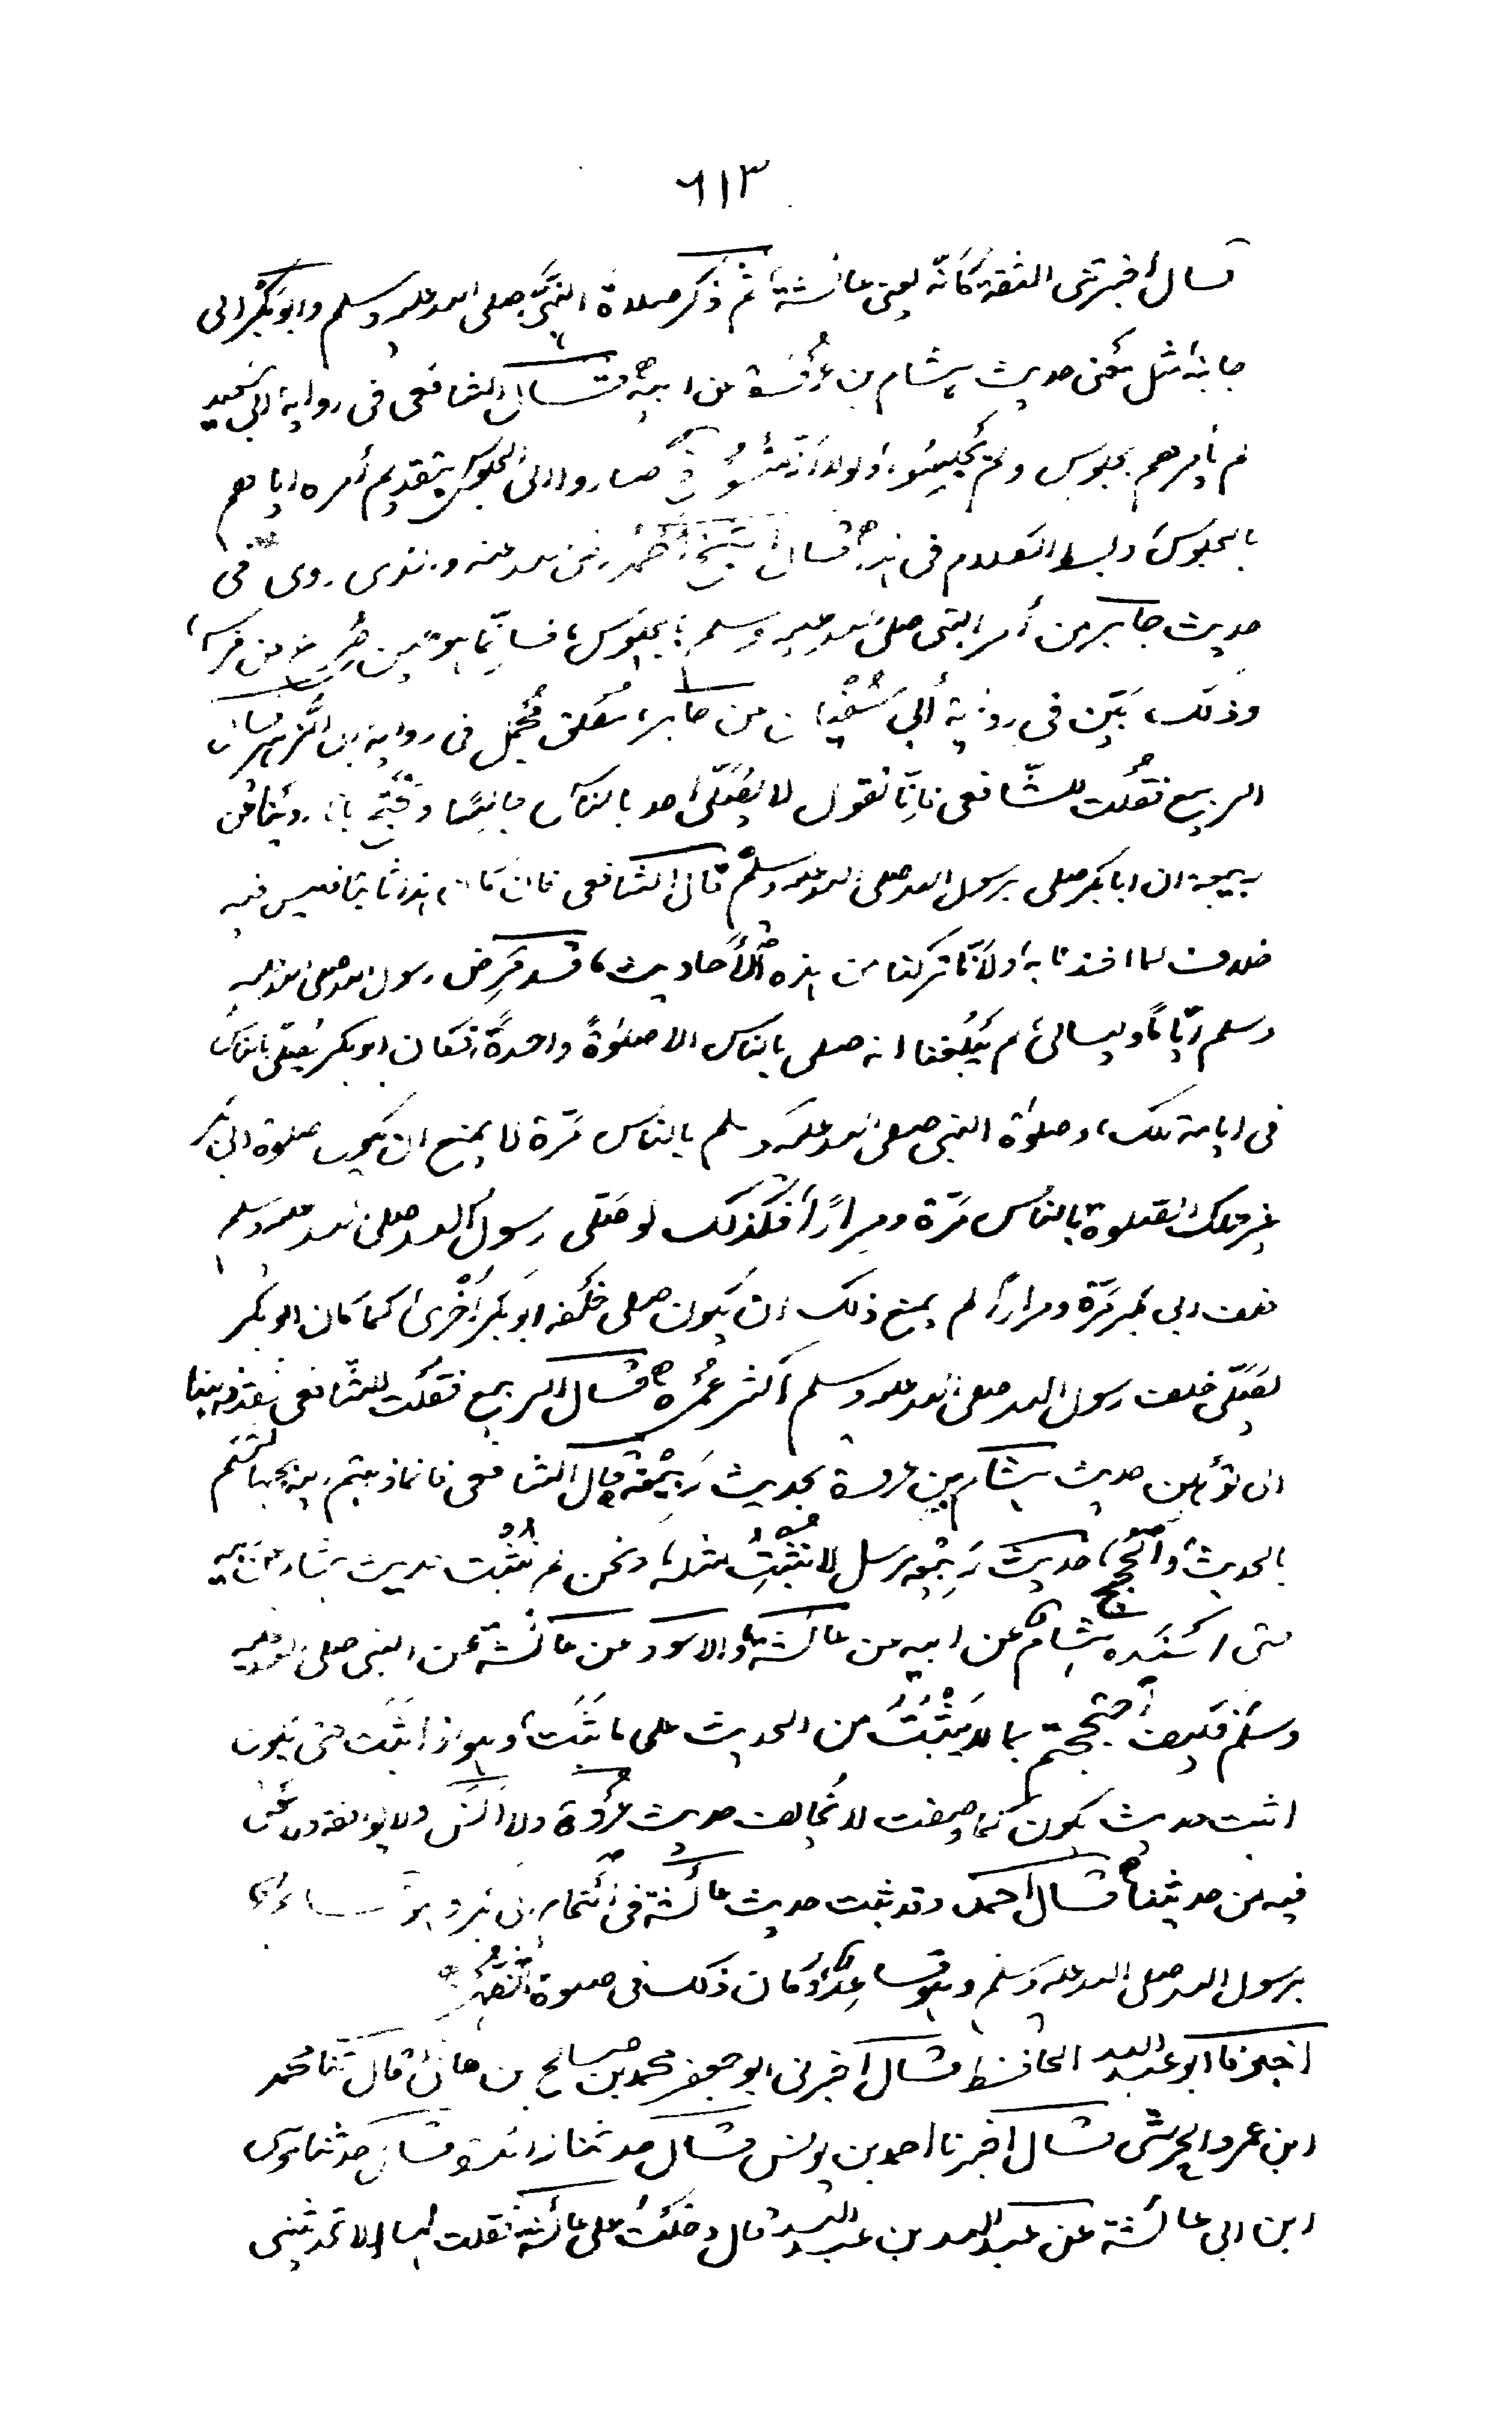 ٦١٣
قال أخبرتنى الثقة كأنه يعنى عائشة ثم ذكر صلاة النبى صلى الله عليه وسلم وابو بكر الى
جانبه مثل معنى حديث هشام بن عروة عن ابيه قال الشافعى فى رواية ابى سعيد
لم يأمرهم بجلوس ولم يجلسوا ولولا أنه صاروا الى الجلوس بتقديم أمره اياهم
بالجلوس وبسط الكلام فى هذا قال الشيخ أحمد رضى الله عنه والذى روى فى
حديث جابر من أمر النبى صلى الله عليه وسلم بالجلوس فإنما هو حين صرع من فرسه
وذلك بين فى رواية أبى سفيان عن جابر مطلق مجمل فى رواية ابى الزبير قال
الربيع فقلت للشافعى فإنا نقول لا يصلى أحد بالناس جالسًا ونحتج بانا روينا عن
ربيعة ان ابا بكر صلى برسول الله صلى الله عليه وسلم قال الشافعى فان كان هذا ثابتا فليس فيه
خلاف لما اخذنا به ولا ما تركنا من هذه الأحاديث قد مرض رسول الله صلى الله عليه
وسلم أيامًا وليالى لم يبلغنا انه صلى بالناس الا صلوةً واحدةً فكان ابو بكر يصلى بالناس
فى ايامه تلك وصلوة النبى صلى الله عليه وسلم بالناس مرة لا يمنع ان يكون صلوة ابى بكر
غير تلك الصلوة بالناس مرة ومرارًا فكذلك لو صلى رسول الله صلى الله عليه وسلم
خلف ابى بكر مرة ومرارًا لم يمنع ذلك ان يكون صلى خلفه ابو بكر أخرى كما كان ابو بكر
يصلى خلف رسول الله صلى الله عليه وسلم أكثر عمره قال الربيع فقلت للشافعى فقد ذهبنا
الى توهين حديث هشام بن عروة بحديث ربيعة قال الشافعى فانما ذهبتم اليه لجهلكم
بالحديث والحجج حديث ربيعة مرسل لا نثبت مثله ونحن لم نثبت حديث هشام عن ابيه
حتى اسنده هشام عن ابيه عن عائشة والاسود عن عائشة عن النبى صلى الله عليه
وسلم فكيف احتججتم بما لا يثبت من الحديث على ما ثبت وهو اذا ثبت حتى يكون
اثبت حديث يكون كما وصفت لا يخالف حديث عروة ولا انس ولا يوافقه ولا معنى
فيه من حديثنا قال أحمد وقد ثبت حديث عائشة فى
برسول الله صلى الله عليه وسلم وهو قاعد وكان ذلك فى صلوة الظهر
اخبرنا ابو عبد الله الحافظ قال اخبرنى ابو جعفر محمد بن صالح بن هانئ قال ثنا محمد
ابن عمرو الحرشى قال اخبرنا احمد بن يونس قال حدثنا زائدة قال حدثنا موسى
ابن ابى عائشة عن عبيد الله بن عبد الله قال دخلت على عائشة فقلت لها الا تحدثينى